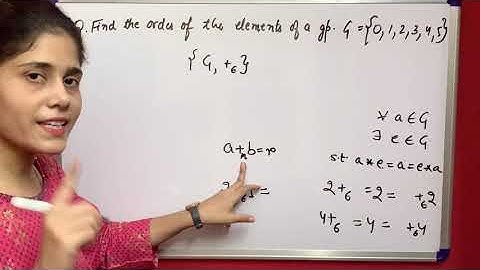 Q. Find the order of the elements of a gp. G = {0, 1, 2, 3, 4, 5}
{G, +₆}
∀ a ∈ G
∃ e ∈ G
s.t a * e = a = e * a
a +ₙ b = r
2 +₆ = 2 = +₆ 2
4 +₆ = 4 = +₆ 4